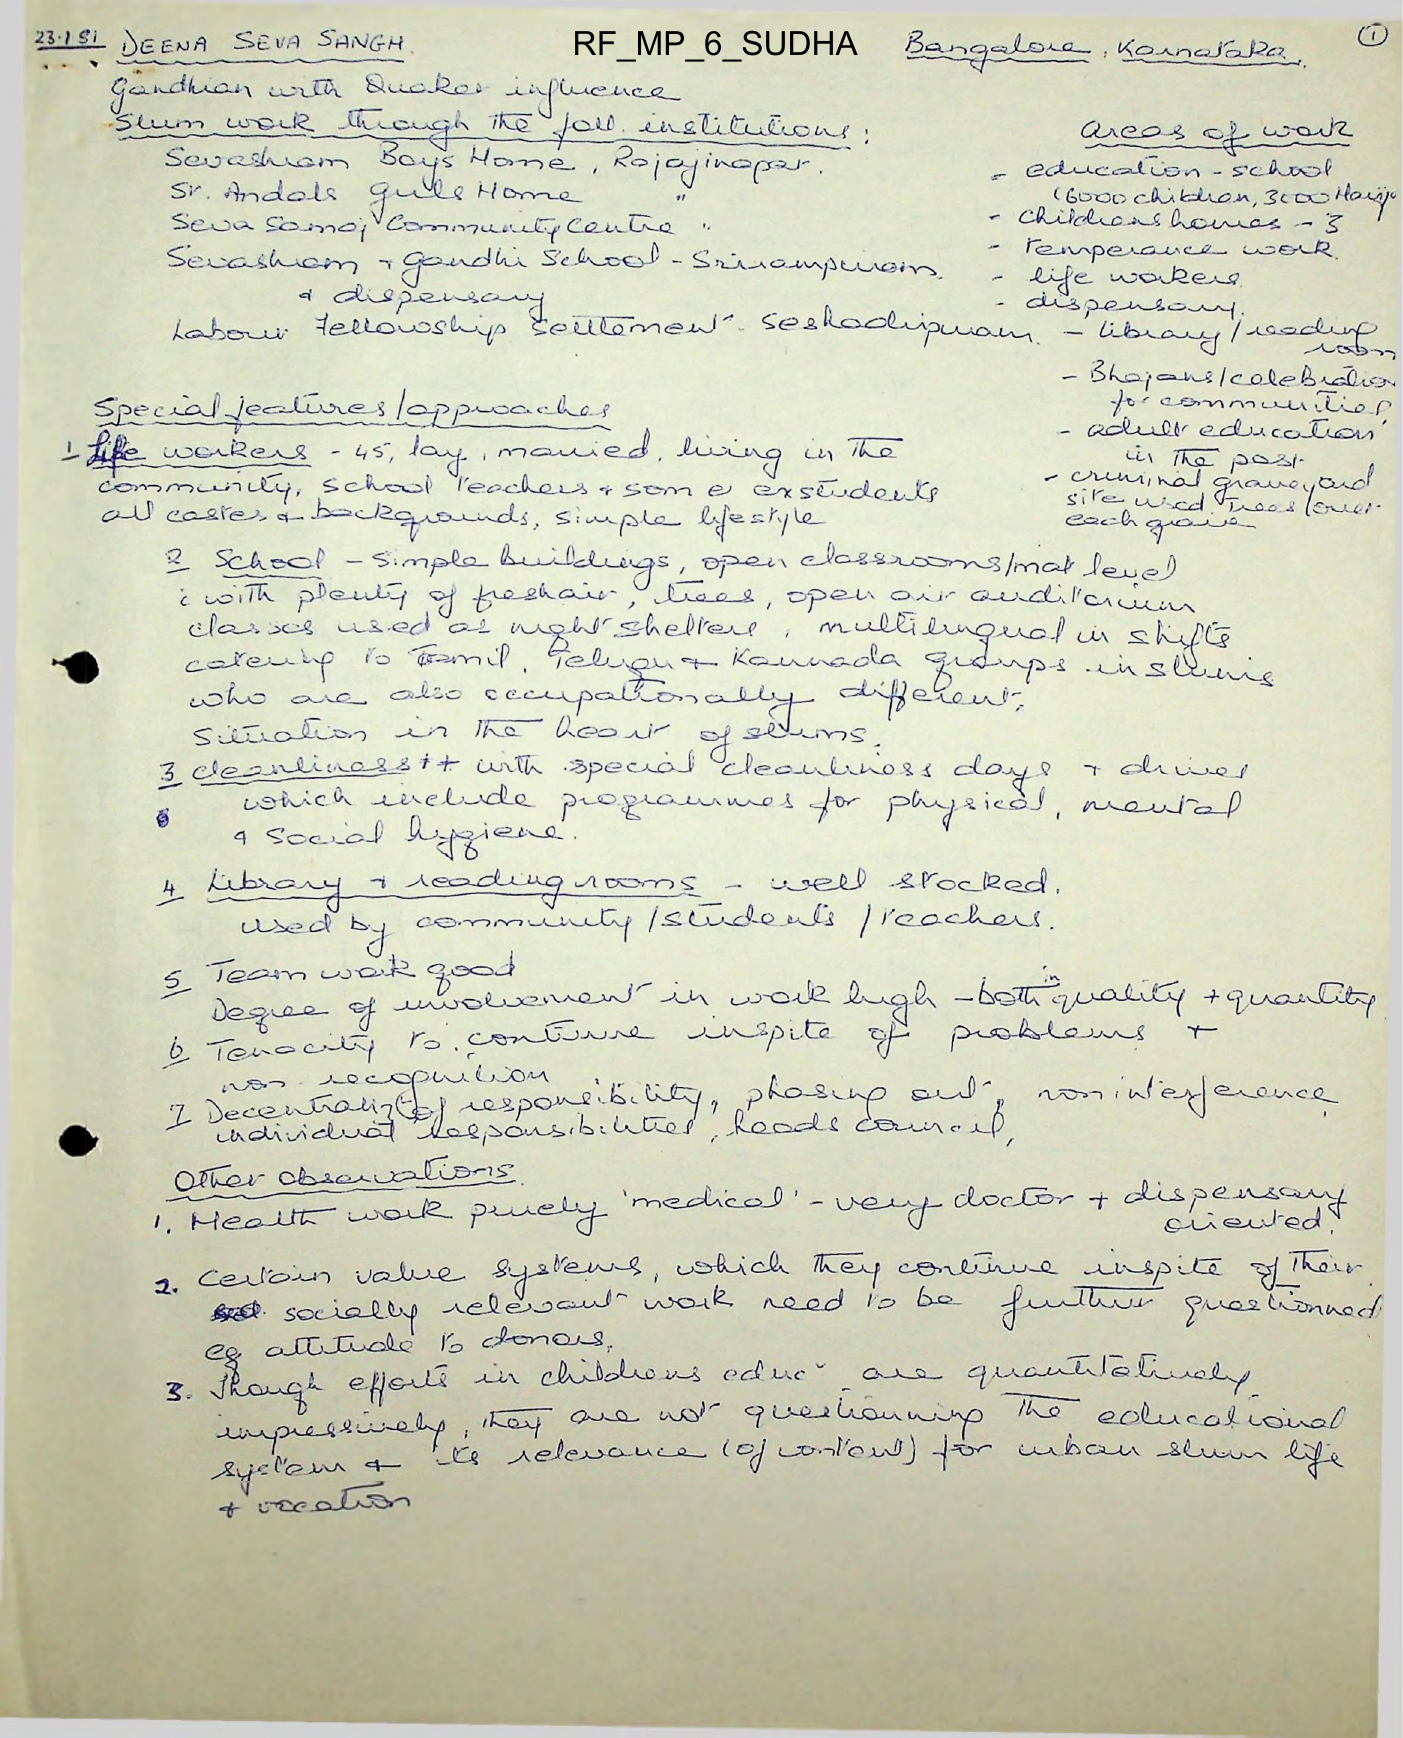 23.1.81 DEENA SEVA SANGH. RF_MP_6_SUDHA Bangalore, Karnataka. 1
Gandhian with Quaker influence
Slum work through the foll. institutions:
Sevashram Boys Home, Rajajinagar.
Sr. Andals Girls Home "
Seva Samaj Community Centre "
Sevashram + Gandhi School - Srirampuram.
& dispensary
Labour Fellowship Settlement - Seshadripuram.
Areas of work
- education - school
(6000 children, 3000 Harij
- childrens homes - 3
- temperance work.
- life workers
- dispensary.
- library/reading
room
- Bhajans/celebration
for communities
- adult education
in the past
- criminal graveyard
site used trees over
each grave
Special features/approaches
1 Life workers - 45, lay, married, living in the
community, school teachers + some exstudents
all castes & backgrounds, simple lifestyle
2 School - Simple buildings, open classrooms/mat level
with plenty of fresh air, trees, open air auditorium
classes used as night shelters, multilingual in shifts
catering to Tamil, Telugu + Kannada groups in slums
who are also occupationally different.
Situation in the heart of slums.
3 cleanliness ++ with special cleanliness days + drives
which include programmes for physical, mental
& social hygiene.
4 Library + reading rooms - well stocked.
used by community/students/teachers.
5 Team work good
Degree of involvement in work high - both in quality + quantity
6 Tenacity to continue inspite of problems +
non recognition
7 Decentralizn of responsibility, phasing out, non interference
individual responsibilities, heads council,
Other observations
1. Health work purely 'medical' - very doctor + dispensary
oriented.
2. Certain value systems, which they continue inspite of their
socially relevant work need to be further questionned
eg attitude to donors.
3. Though efforts in childrens educn are quantitatively
impressively, they are not questionning the educational
system + its relevance (of content) for urban slum life
& vocation